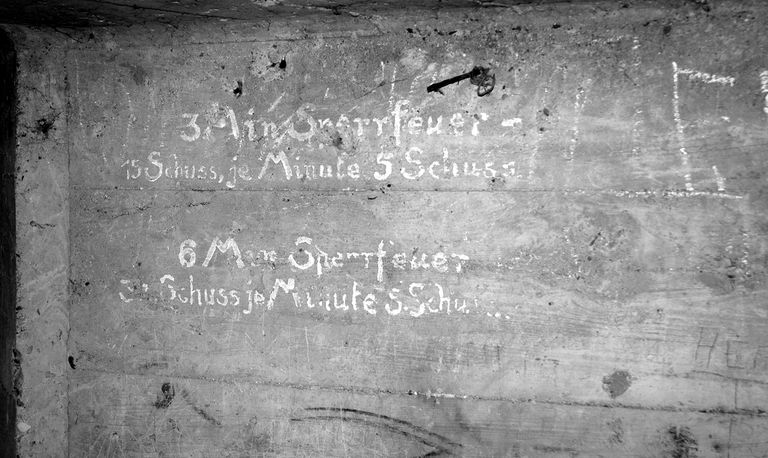 3 Min Sperrfeuer -
15 Schuss, je Minute 5 Schuss
6 Min Sperrfeuer
Schuss je Minute 5